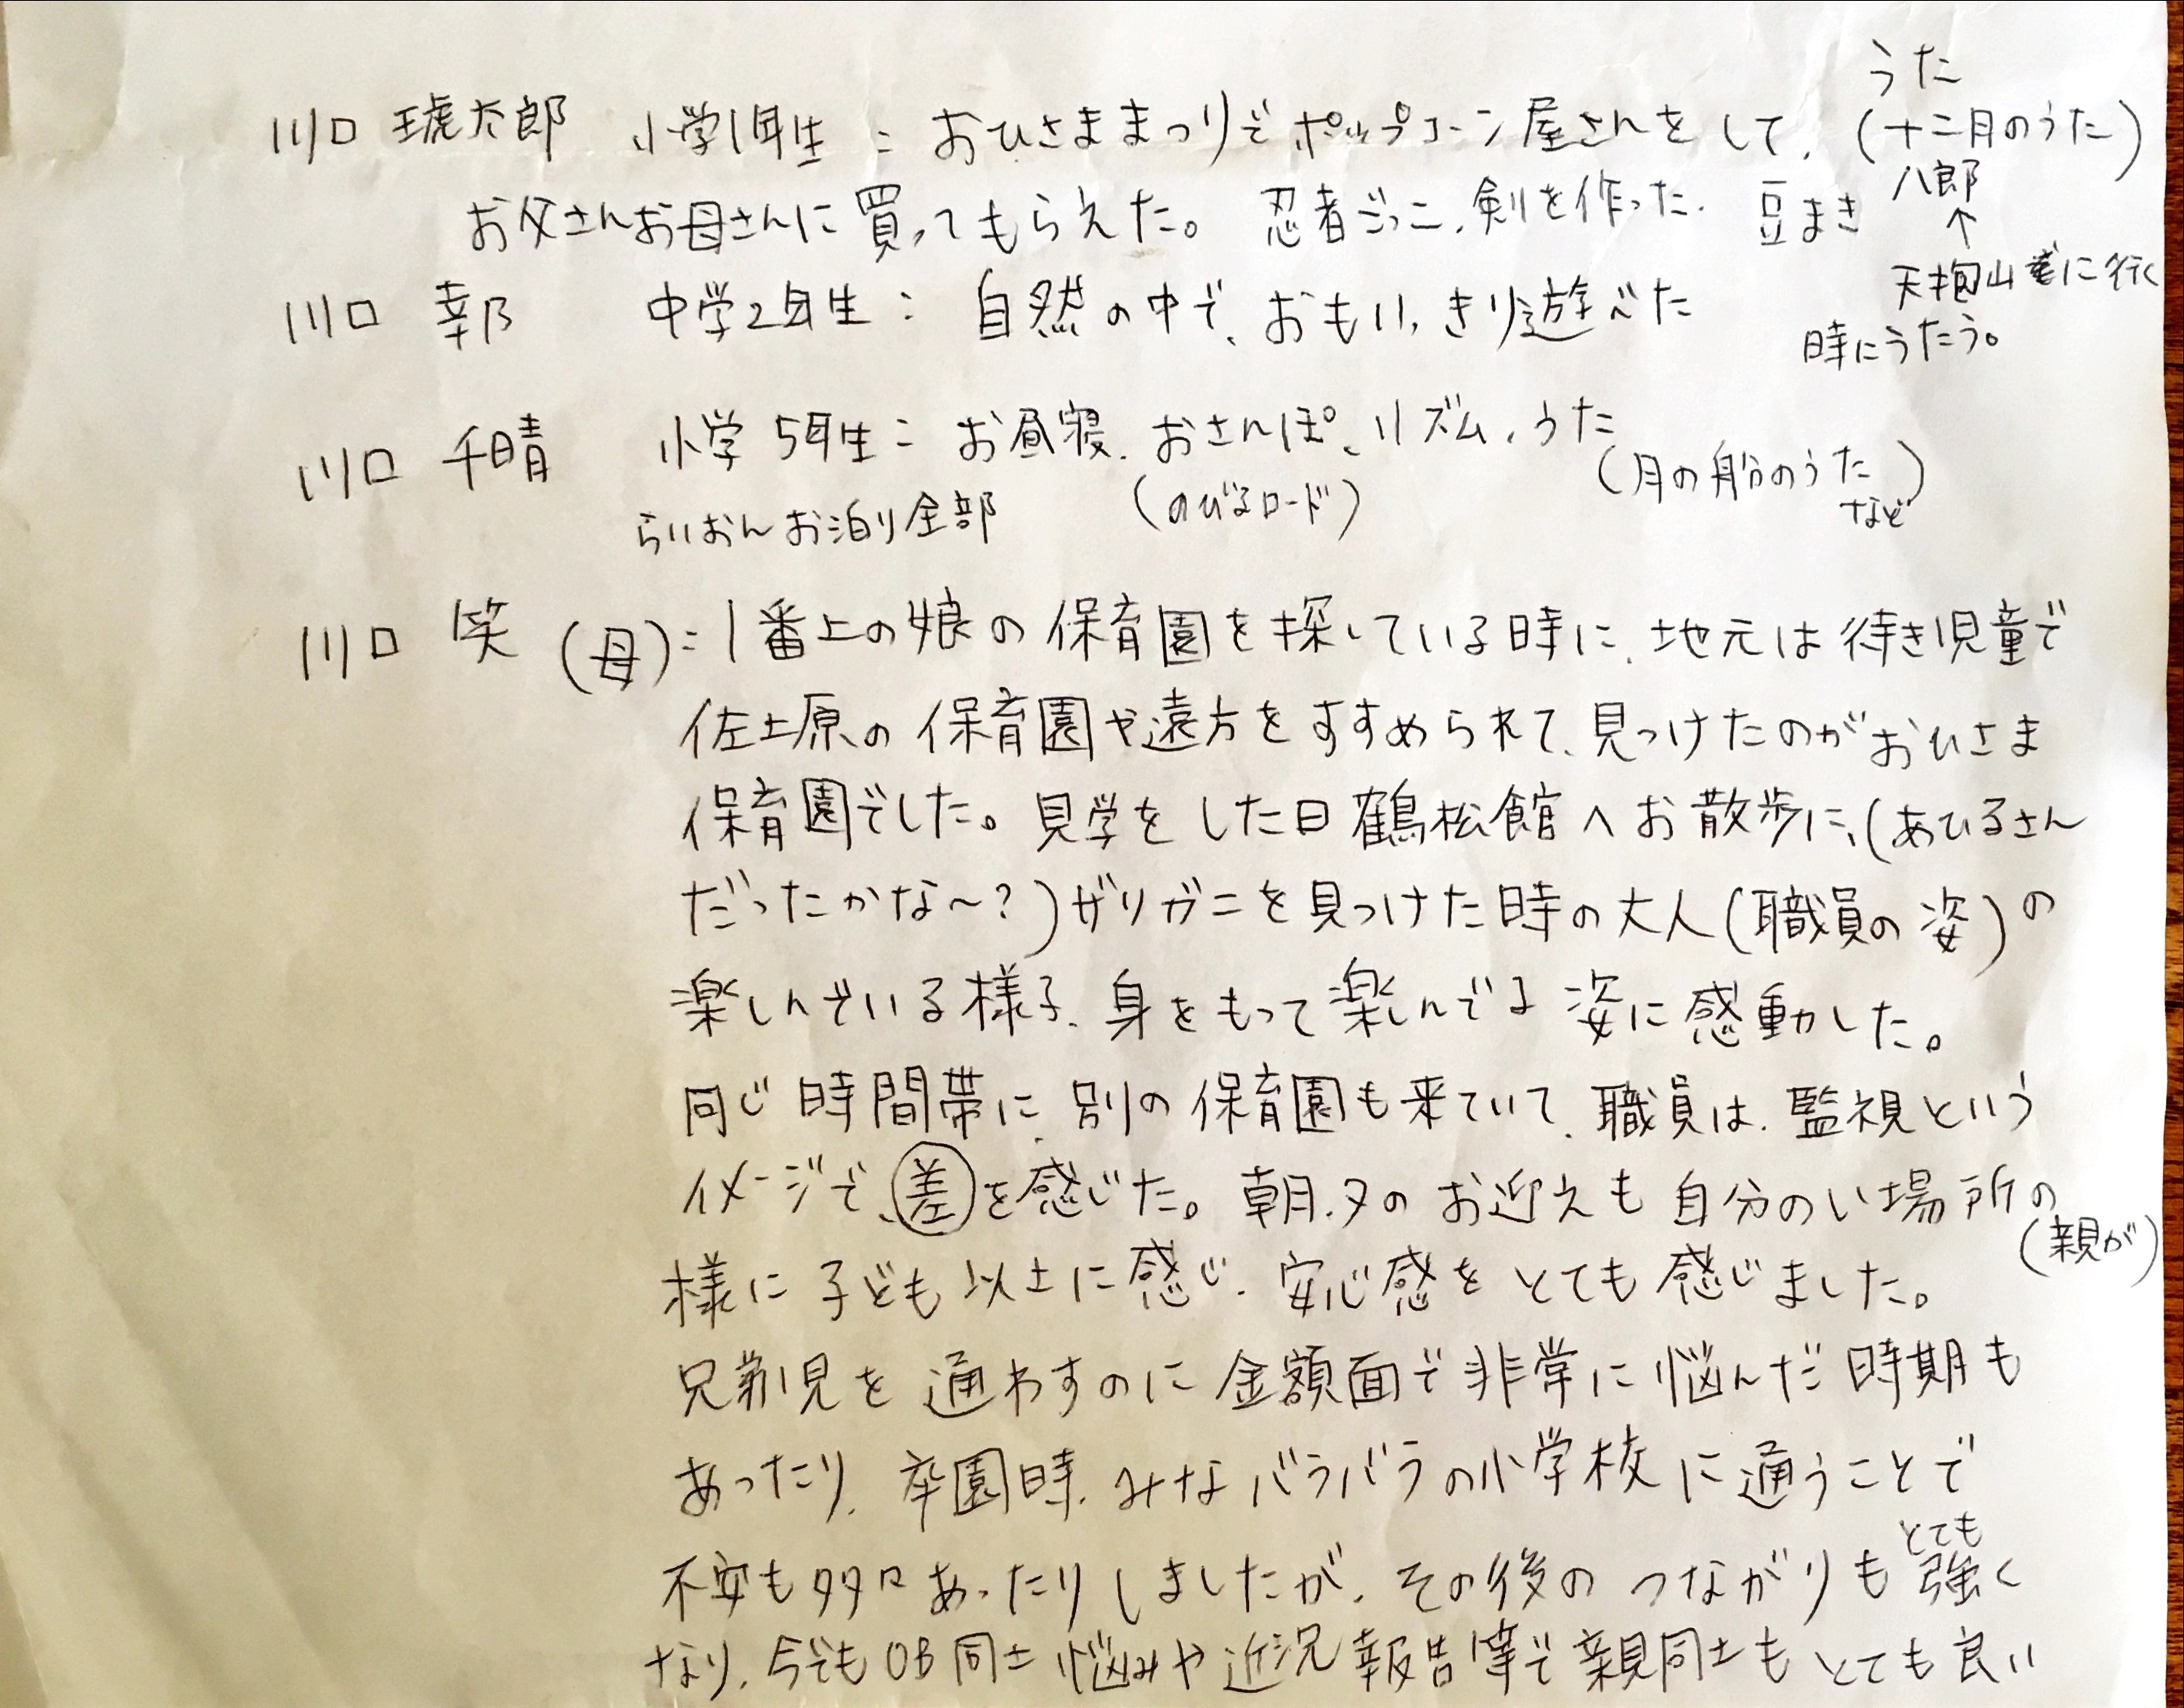 うた
川口 琥太郎 小学1年生：おひさままつりでポップコーン屋さんをして、(十二月のうた)
お父さんお母さんに買ってもらえた。忍者ごっこ、剣を作った. 豆まき 八郎
↑
川口 幸乃 中学2年生：自然の中で、おもいっきり遊べた 天包山に行く
時にうたう。
川口 千晴 小学5年生：お昼寝、おさんぽ、リズム、うた
(のびるロード) (月の船のうたなど)
らいおんお泊り全部
川口 笑 (母)：1番上の娘の保育園を探している時に、地元は待き児童で
佐土原の保育園や遠方をすすめられて、見つけたのがおひさま
保育園でした。見学をした日鶴松館へお散歩に、(あひるさん
だったかな〜?)ザリガニを見つけた時の大人(職員の姿)の
楽しんでいる様子、身をもって楽しんでる姿に感動した。
同じ時間帯に、別の保育園も来ていて、職員は、監視という
イメージで、差を感じた。朝、夕のお迎えも自分のい場所の
(親が)
様に子ども以上に感じ、安心感をとても感じました。
兄弟児を通わすのに金額面で非常に悩んだ時期も
あったり、卒園時、みなバラバラの小学校に通うことで
とても
不安も多々あったりしましたが、その後のつながりも強く
なり、今でもOB同士悩みや近況報告等で親同士もとても良い